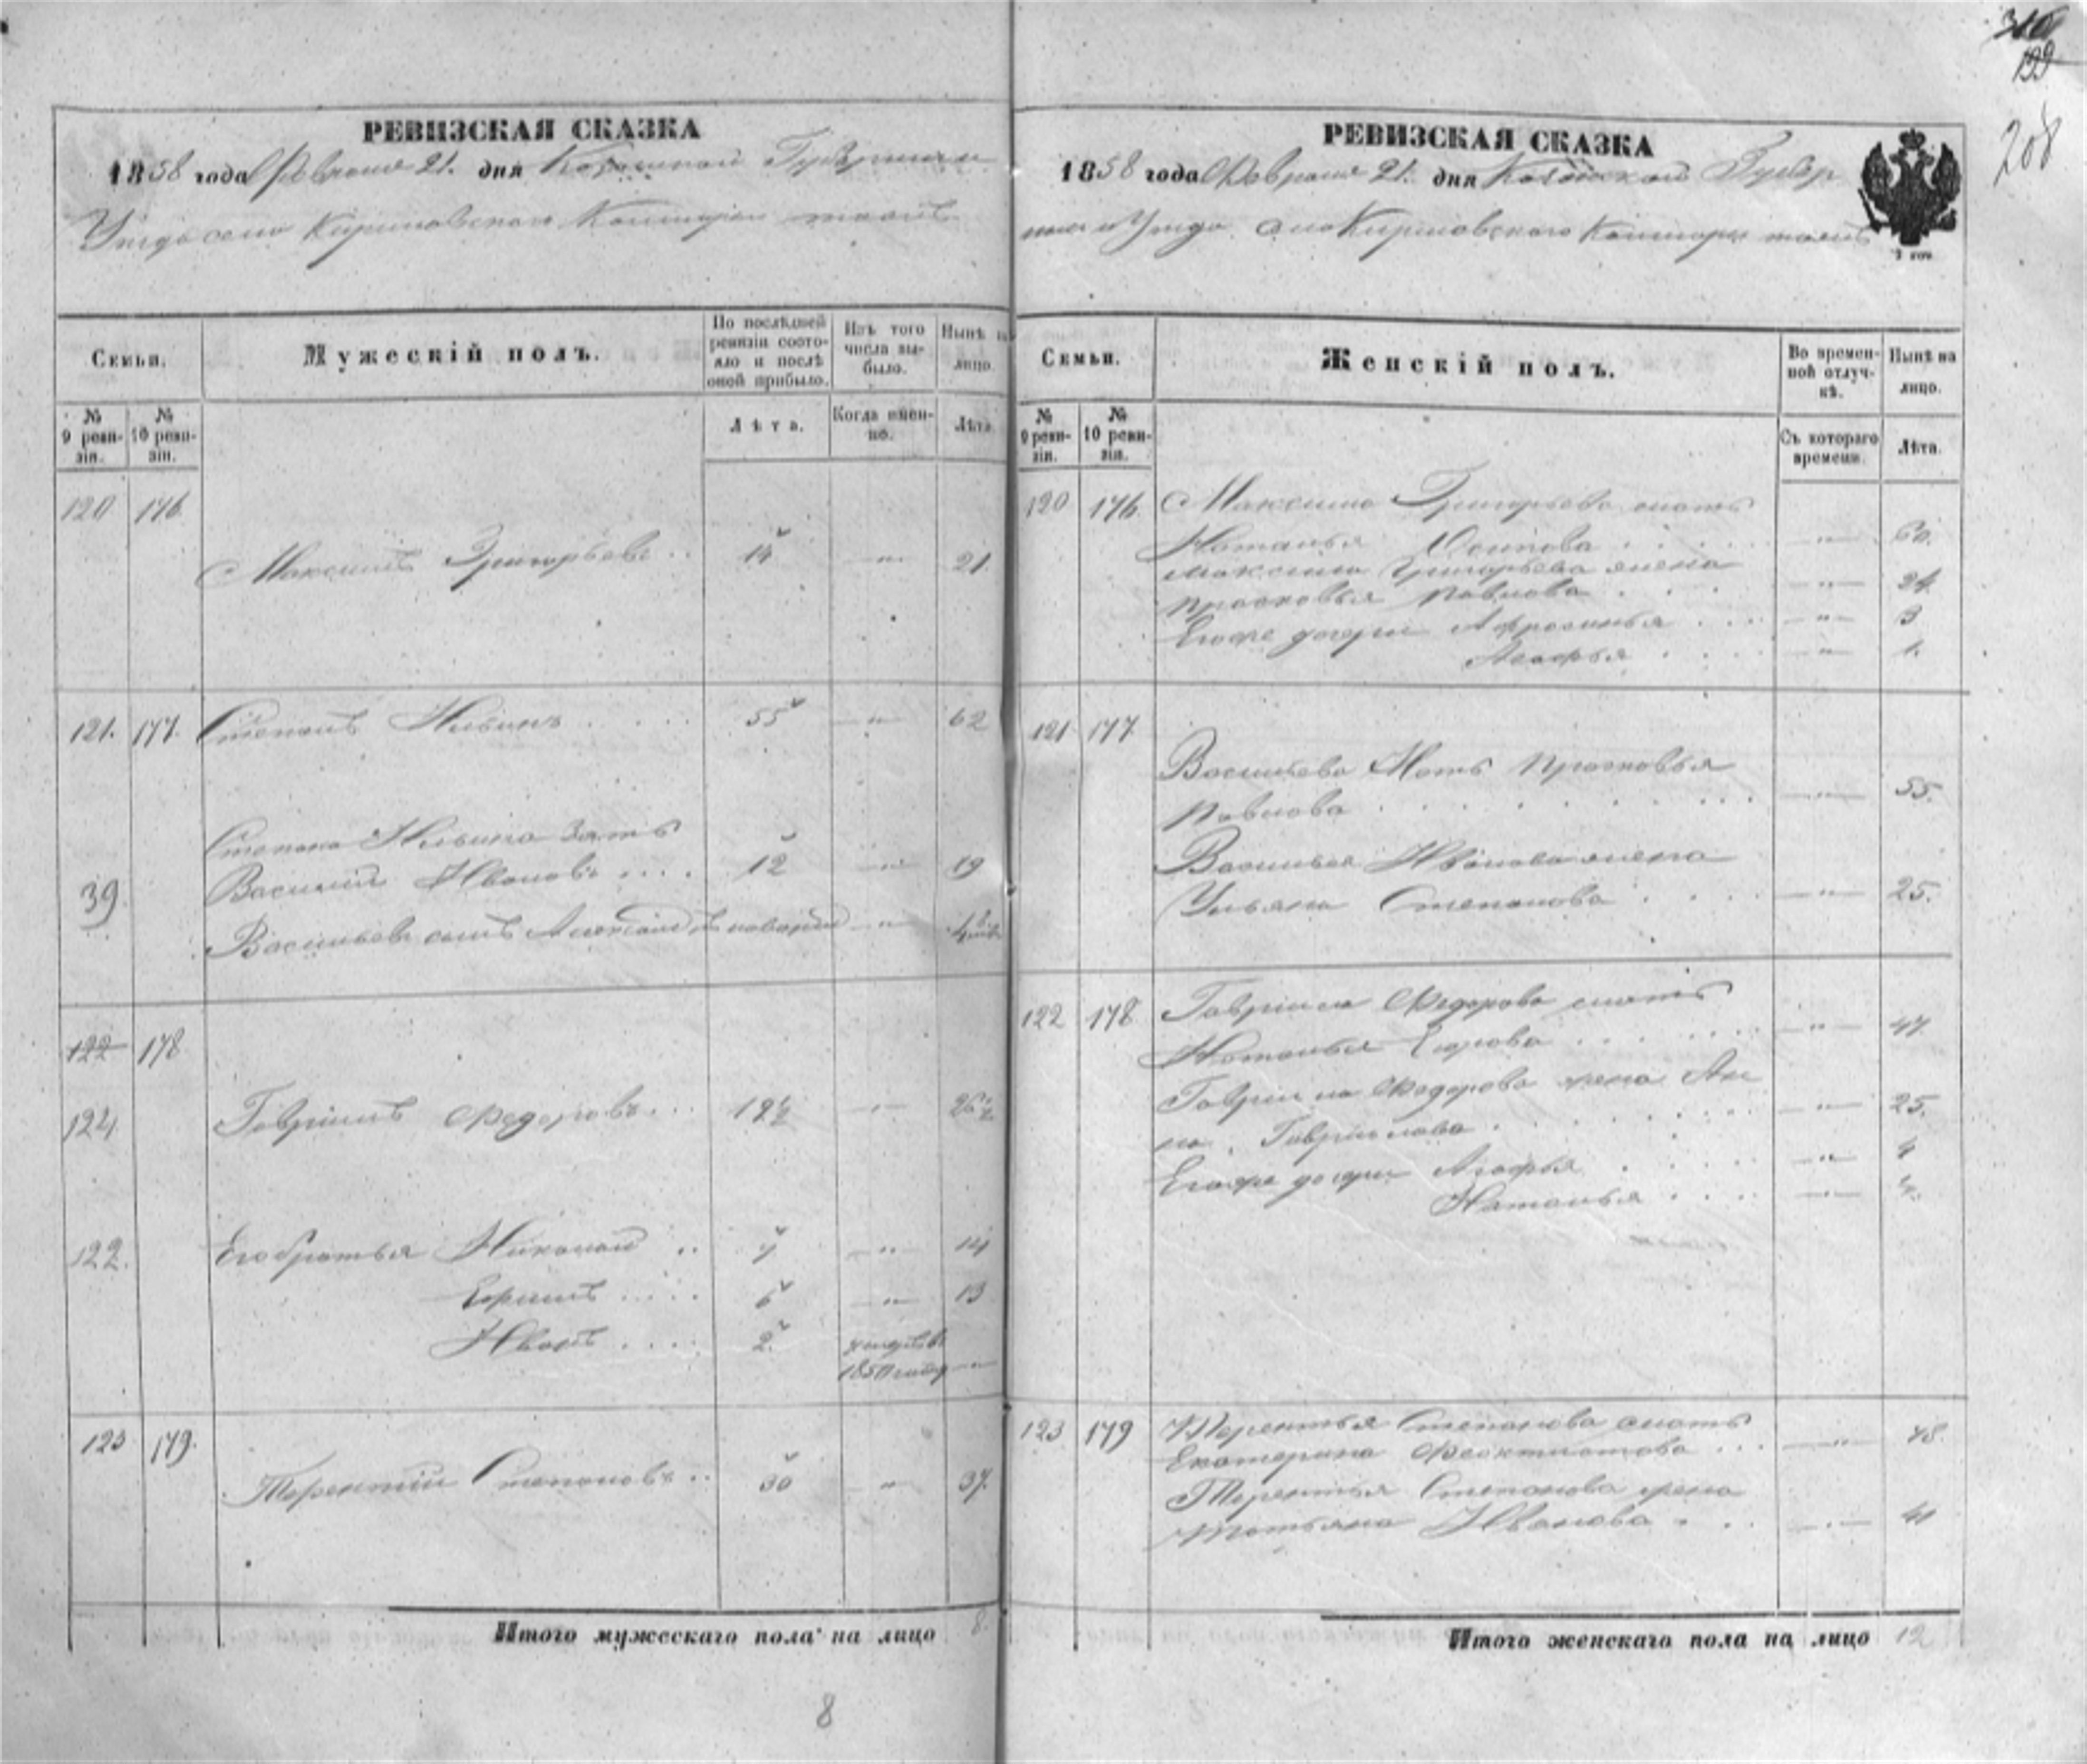 310
199
208
РЕВИЗСКАЯ СКАЗКА
1858 года Февраля 21. дня Казанской Губерніи и
Уѣзда села Кириловскаго Конторы татъ
Семьи.
Мужескій полъ.
По послѣдней ревизіи состояло и послѣ оной прибыло.
Изъ того числа выбыло.
Нынѣ на лицо.
№ 9 ревизіи.
№ 10 ревизіи.
Лѣта.
Когда именно.
Лѣта.
120 176
Максимъ Григорьевъ .. 14 — 21.
121. 177. Степанъ Ильинъ .... 55 — 62
Степана Ильина Зять
39. Василій Ивановъ .... 12 — 19
Васильевъ сынъ Алексѣй новорож —
122 178
124 Гавріилъ Федоровъ ... 19½ — 26½
122. Его братья Николай .. 7 — 14
Ефимъ .... 6 — 13
Иванъ .... 2. умеръ въ
1850 году —
123 179.
Терентій Степановъ .. 30 — 37.
Итого мужескаго пола на лицо 8.
8
РЕВИЗСКАЯ СКАЗКА
1858 года Февраля 21. дня Казанской Губер
ніи и Уѣзда села Кириловскаго Конторы татъ
Семьи.
Женскій полъ.
Во временной отлучкѣ.
Нынѣ на лицо.
№ 9 ревизіи.
№ 10 ревизіи.
Съ котораго времени.
Лѣта.
120 176. Максима Григорьева мать
Наталья Осипова .... — 60.
Максима Григорьева жена
Прасковья Павлова ... — 24.
Егоже дочери Афросинья .... — 3
Агафья .... — 1.
121 177
Васильева Мать Прасковья
Павлова ........ — 55.
Василья Иванова жена
Ульяна Степанова .... — 25.
122 178 Гавріила Федорова мать
Наталья Егорова ...... — 47
Гавріила Федорова жена Ан
на Гаврилова ........ — 25.
Егоже дочери Агафья .... — 4
Наталья ....
123 179 Терентья Степанова мать
Екатерина Феоктистова ... — 78.
Терентья Степанова жена
Татьяна Иванова ... — 41
Итого женскаго пола на лицо 12